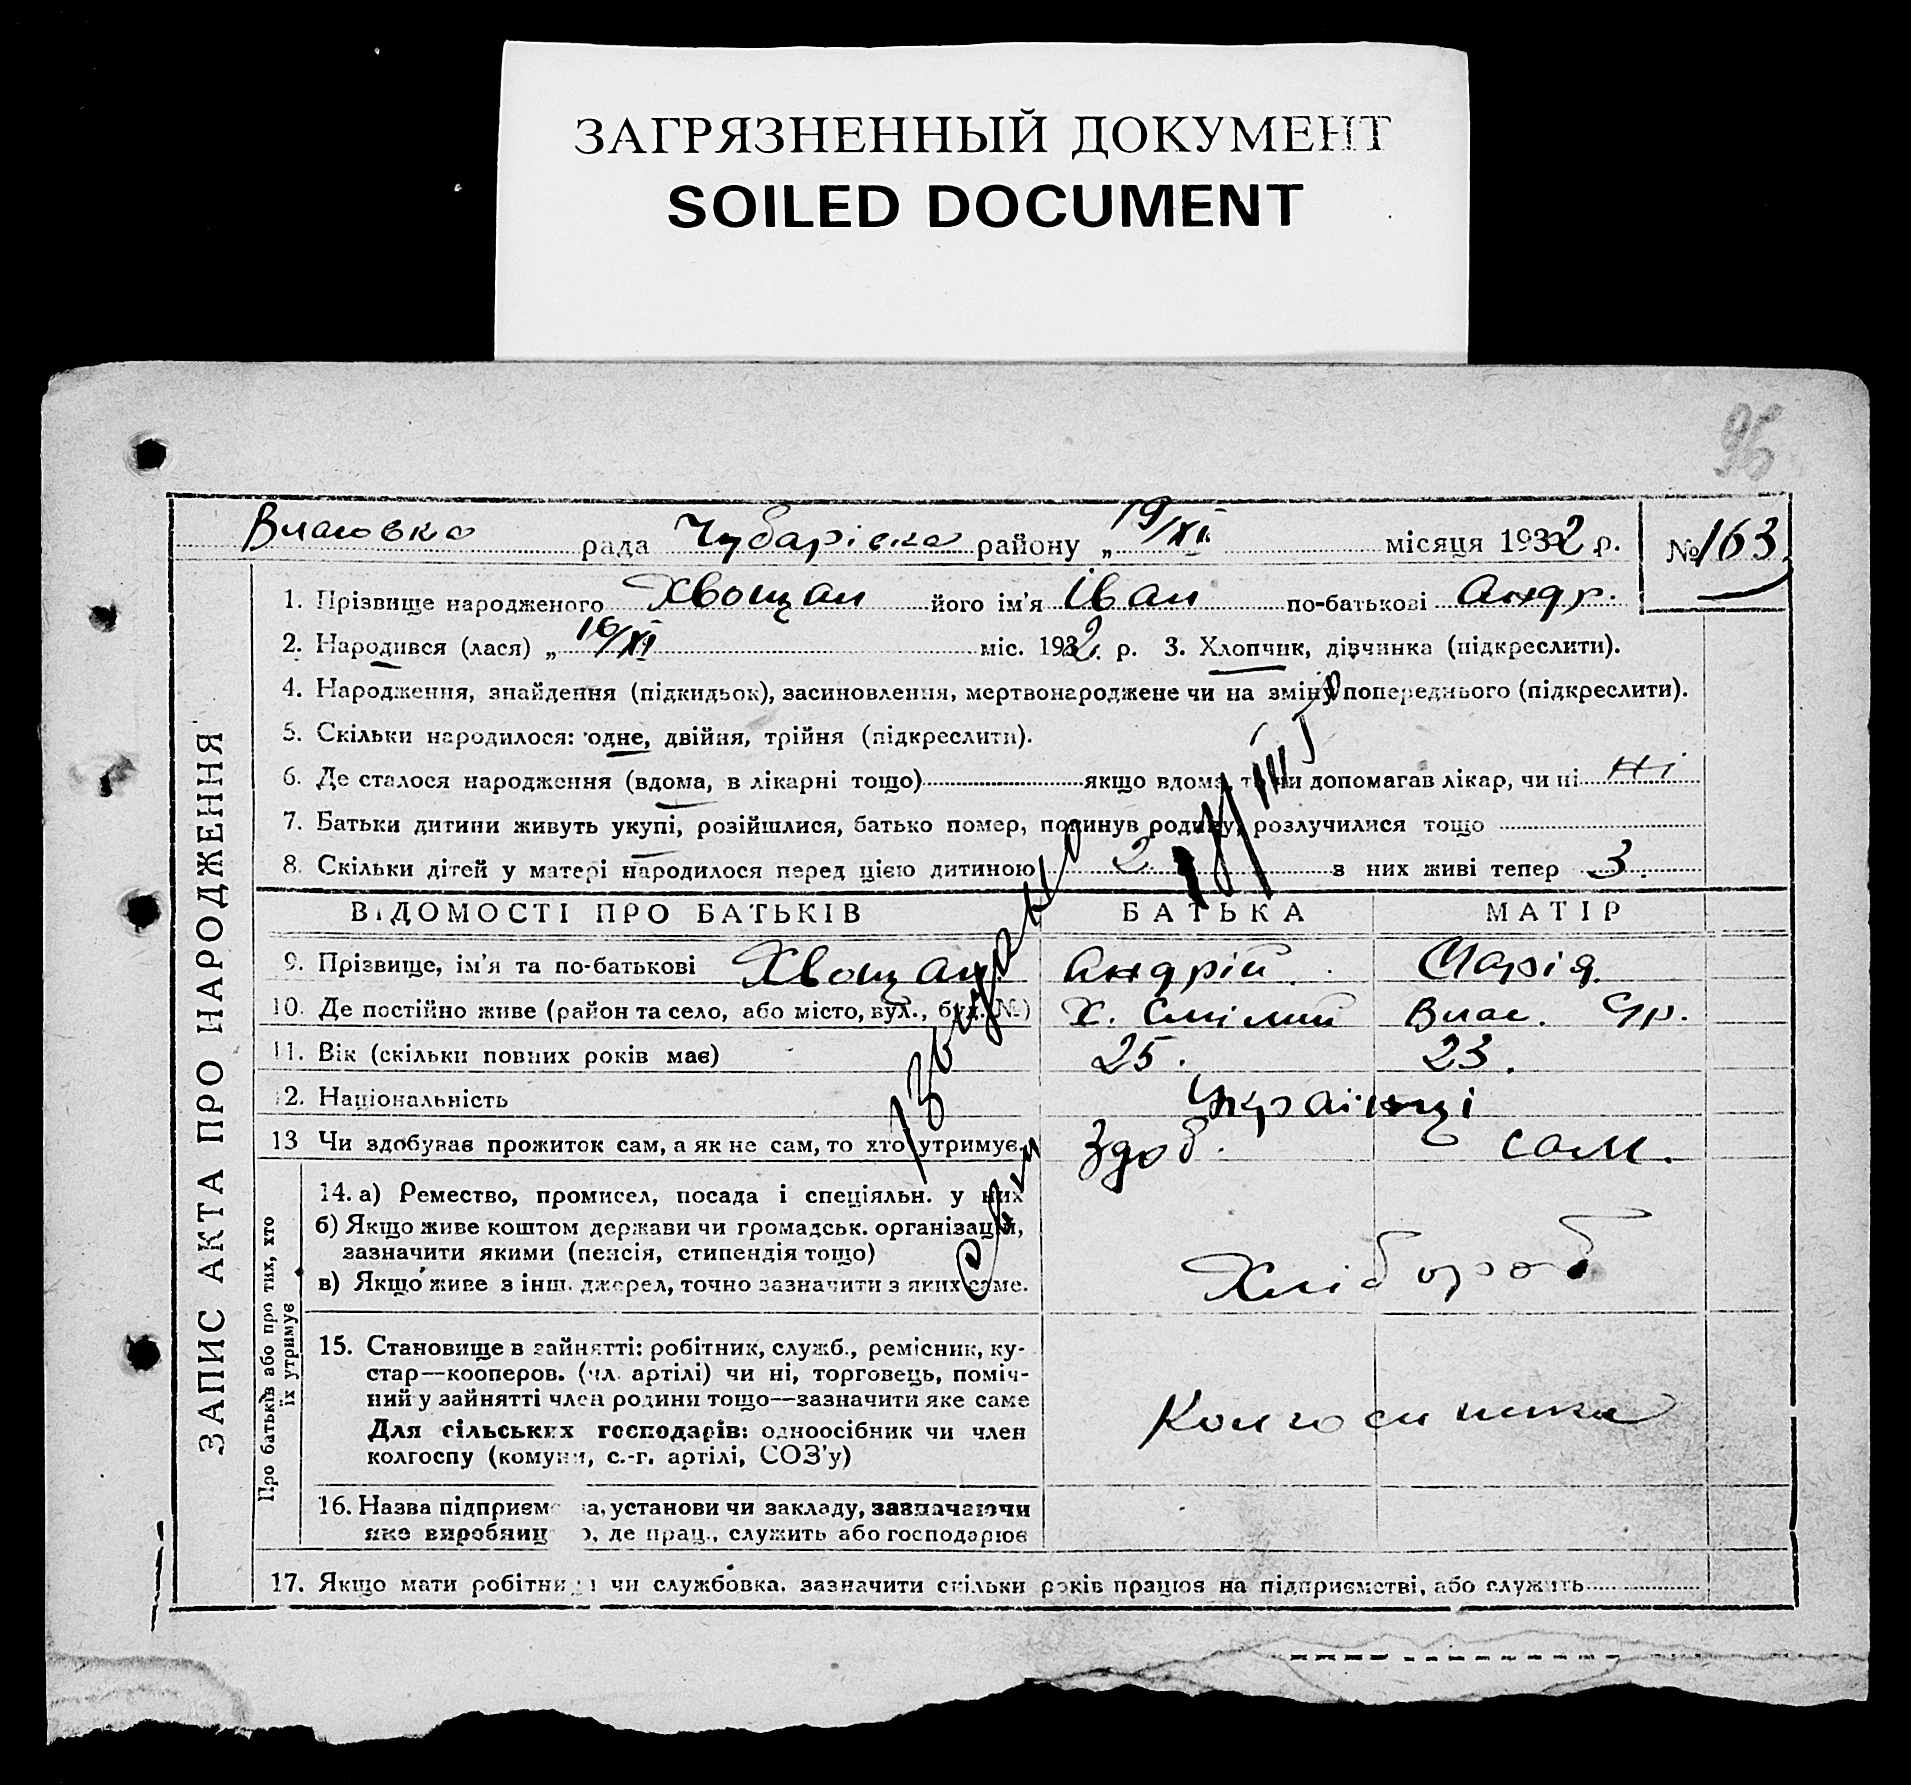 ЗАГРЯЗНЕННЫЙ ДОКУМЕНТ
SOILED DOCUMENT
96
Власовка рада Чубарівка району „ 19/XI місяця 1932 р. № 163
1. Прізвище народженого Хвощан його ім'я Іван по-батькові Андр.
2. Народився (лася) „ 16/XI міс. 1932 р. 3. Хлопчик, дівчинка (підкреслити).
4. Народження, знайдення (підкидьок), засиновлення, мертвонароджене чи на зміну попереднього (підкреслити).
5. Скільки народилося: одне, двійня, трійня (підкреслити).
6. Де сталося народження (вдома, в лікарні тощо) якщо вдома, то чи допомагав лікар, чи ні Ні
7. Батьки дитини живуть укупі, розійшлися, батько помер, покинув родину, розлучилися тощо
8. Скільки дітей у матері народилося перед цією дитиною 2 з них живі тепер 3.
ВІДОМОСТІ ПРО БАТЬКІВ БАТЬКА МАТІР
9. Прізвище, ім'я та по-батькові Хвощан Андрій Марія
10. Де постійно живе (район та село, або місто, вул., буд. №) Х. Смілий Влас. Чр.
11. Вік (скільки повних років має) 25. 23.
12. Національність Українці
13 Чи здобуває прожиток сам, а як не сам, то хто утримує Здоб. сам.
14. а) Ремество, промисел, посада і спеціяльн. у них
б) Якщо живе коштом держави чи громадськ. організацій,
зазначити якими (пенсія, стипендія тощо)
в) Якщо живе з інш. джерел, точно зазначити з яких саме.
Хлібороб
15. Становище в зайнятті: робітник, служб., ремісник, ку-
стар—кооперов. (чл. артілі) чи ні, торговець, поміч-
ний у зайнятті член родини тощо—зазначити яке саме
Для сільських господарів: одноосібник чи член
колгоспу (комуни, с.-г. артілі, СОЗ'у)
Колгоспники
16. Назва підприємства, установи чи закладу, зазначаючи
яке виробництво, де прац., служить або господарює
17. Якщо мати робітниця чи службовка, зазначити скільки років працює на підприємстві, або служить
ЗАПИС АКТА ПРО НАРОДЖЕННЯ
Про батьків або про тих, хто
їх утримує